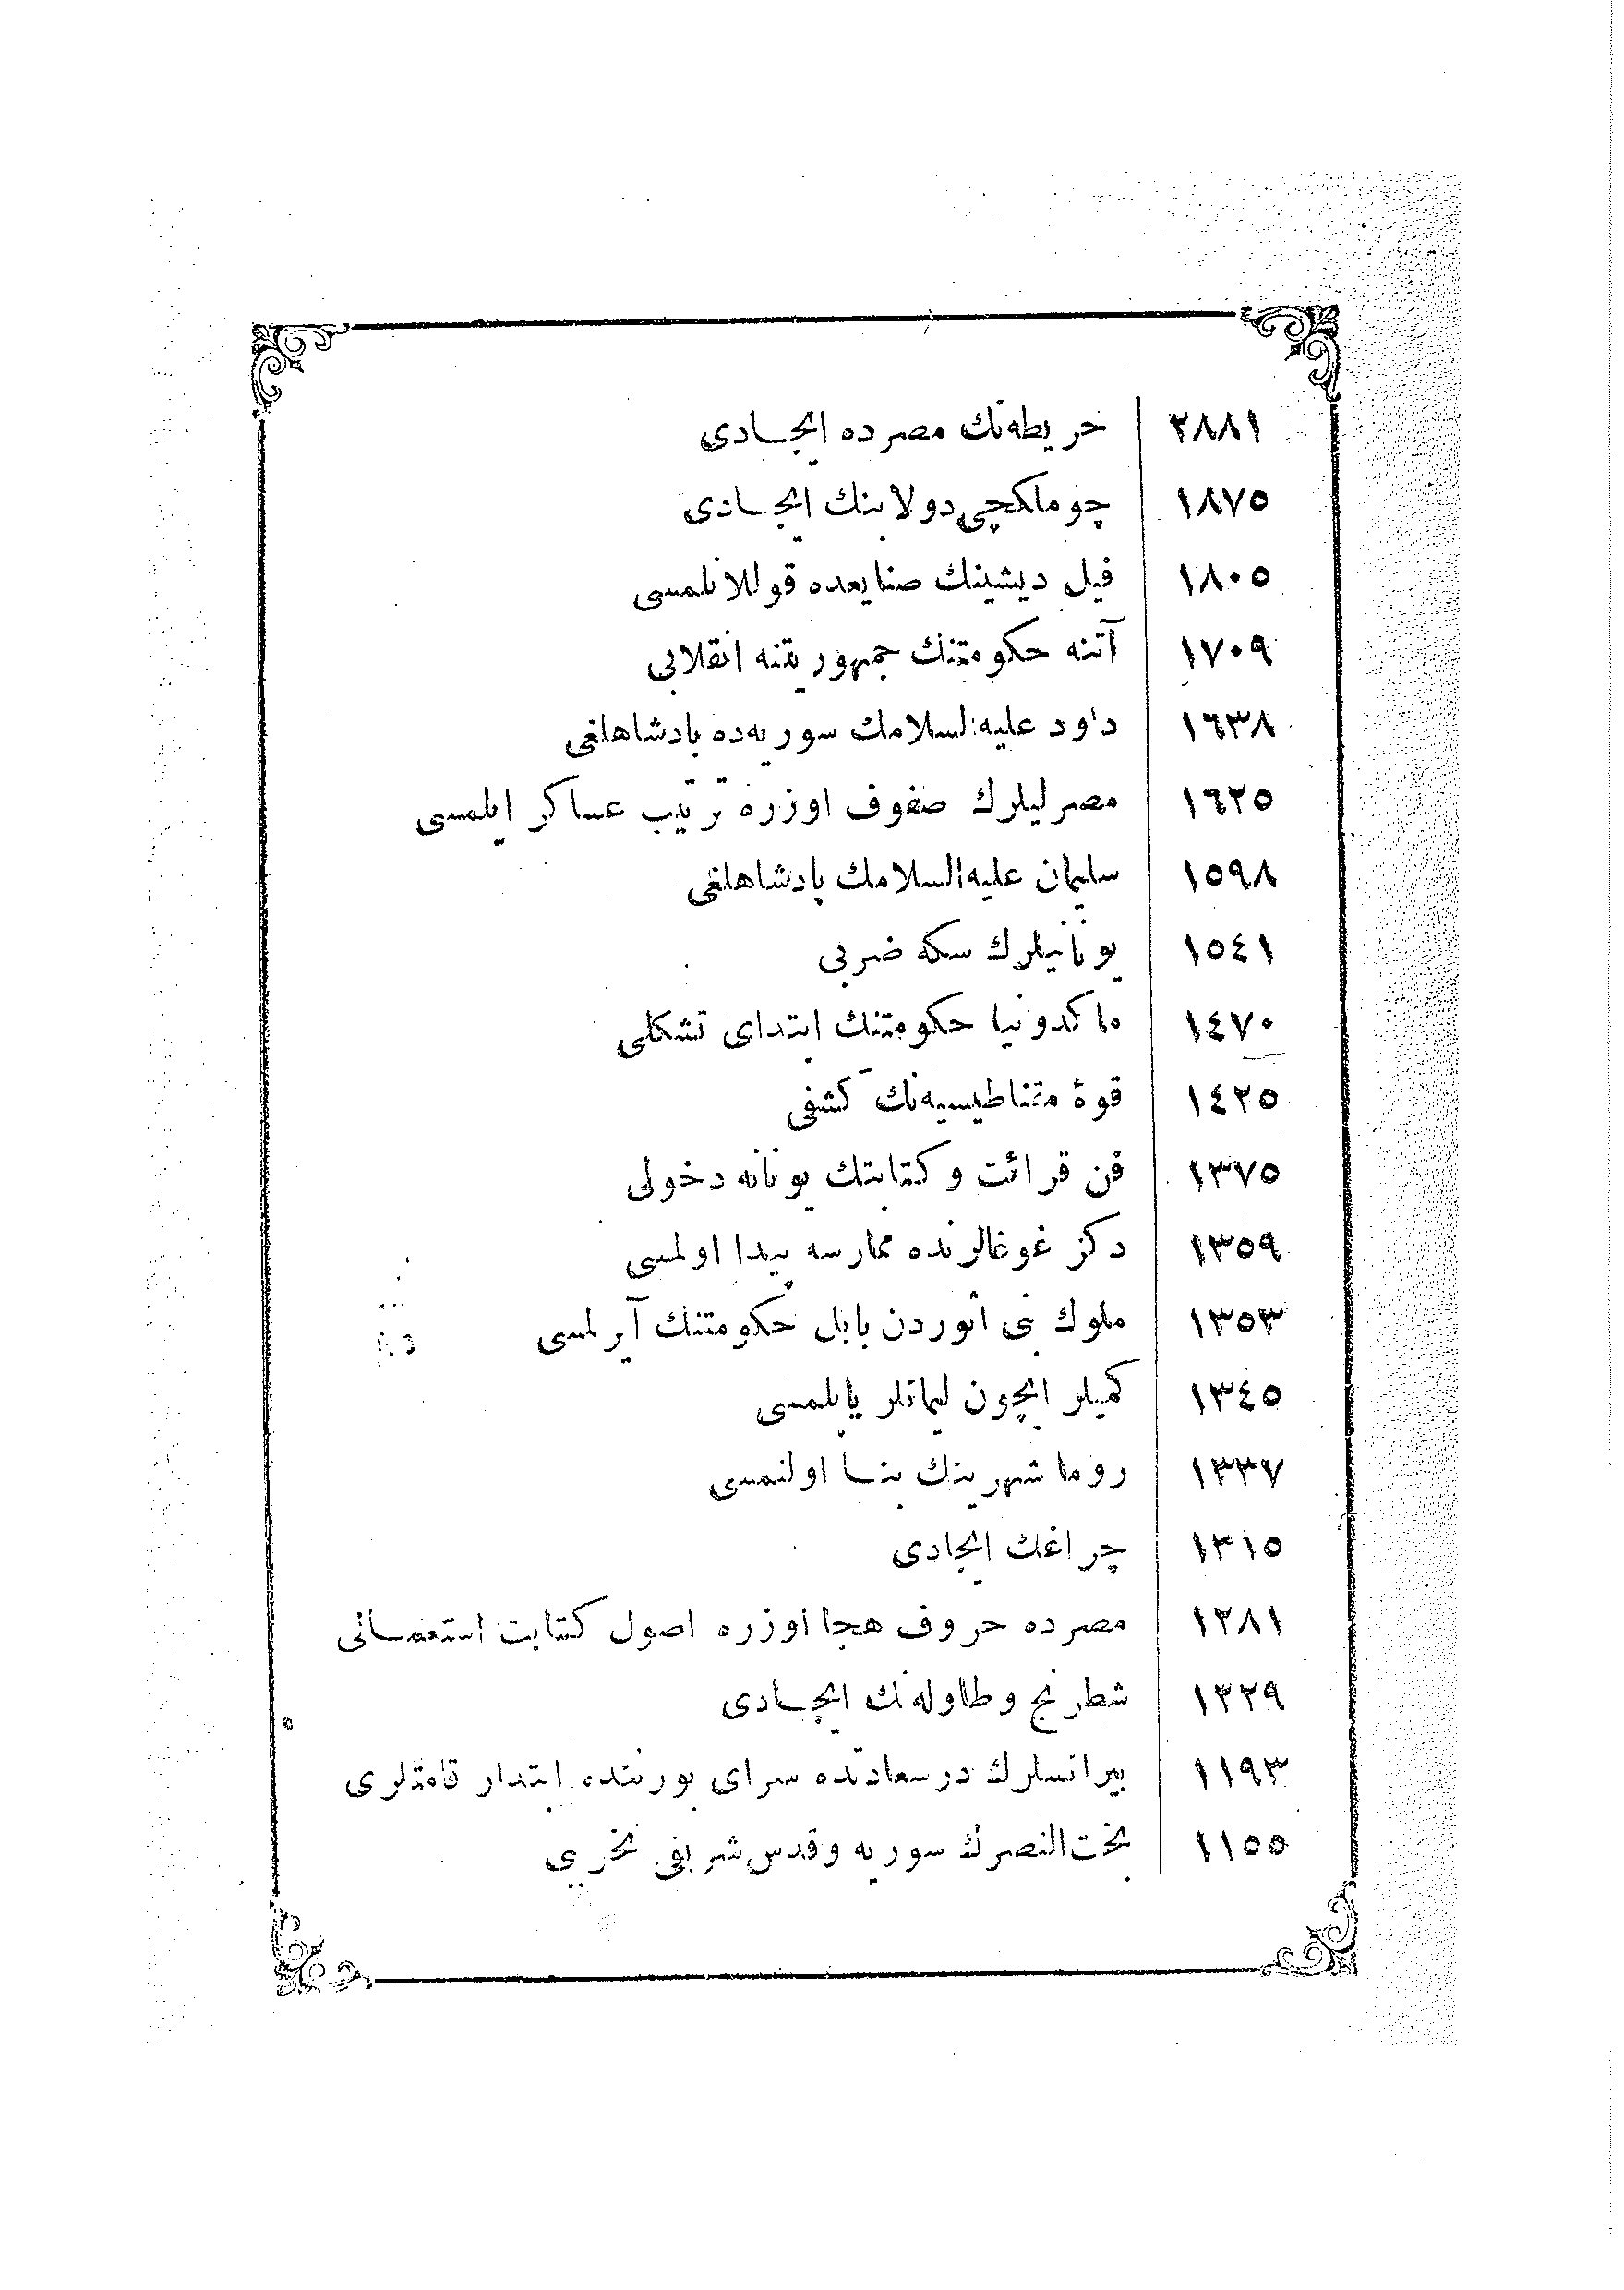 ٢٨٨١ خريطه‌نك مصرده ايجادى
١٨٧٥ چوملكچى دولابنك ايجادى
١٨٠٥ فيل ديشينك صنايعده قوللانلمسى
١٧٠٩ آتنه حكومتنك جمهوريتنه انقلابى
١٦٣٨ داود عليه‌السلامك سوريه‌ده پادشاهلغى
١٦٢٥ مصرليلرك صفوف اوزره ترتيب عساكر ايلمسى
١٥٩٨ سليمان عليه‌السلامك پادشاهلغى
١٥٤١ يونانيلرك سكه ضربى
١٤٧٠ ماكدونيا حكومتنك ابتداى تشكلى
١٤٢٥ قوۀ مقناطيسيه‌نك كشفى
١٣٧٥ فن قرائت و كتابتك يونانه دخولى
١٣٥٩ دكز غوغالرنده ممارسه پيدا اولمسى
١٣٥٣ ملوك بنى اثوردن بابل حكومتنك آيرلمسى
١٣٤٥ كميلر ايچون ليمانلر ياپلمسى
١٣٣٧ روما شهرينك بنا اولنمسى
١٣١٥ چراغك ايجادى
١٢٨١ مصرده حروف هجا اوزره اصول كتابت استعمالى
١٢٢٩ شطرنج و طاوله‌نك ايجادى
١١٩٣ بيزانسلرك درسعادتده سراى بورننده ابتدار قامتلرى
١١٥٥ بخت‌النصرك سوريه و قدس شريفى تخريبى